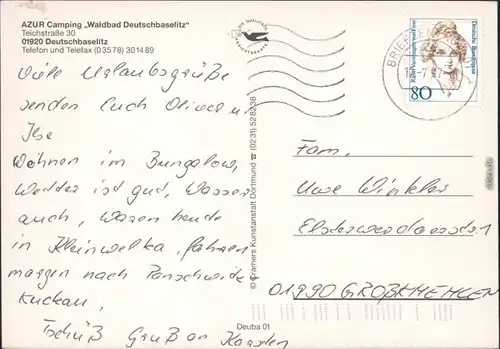 AZUR Camping „Waldbad Deutschbaselitz“
Teichstraße 30
01920 Deutschbaselitz
Telefon und Telefax (03578) 301489
Viele Urlaubsgrüße
senden Euch Oliver u.
Ilse
Wohnen im Bungalow,
Wetter ist gut, Wasser
auch, waren heute
in Kleinwelka, fahren
morgen nach
Kuckau,
Tschüß Gruß an
© Cramers Kunstanstalt Dortmund ☎ (0231) 528238
Deuba 01
Deutsche Bundespost
80
Fam.
Uwe Winkler
01990 GROßKMEHLEN